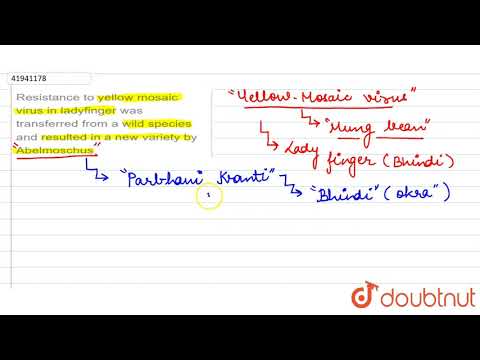 41941178
Resistance to yellow mosaic
virus in ladyfinger was
transferred from a wild species
and resulted in a new variety by
"Abelmoschus"
"Yellow-Mosaic virus"
"Mung bean"
Lady finger (Bhindi)
"Parbhani Kranti"
"Bhindi" (okra")
doubtnut